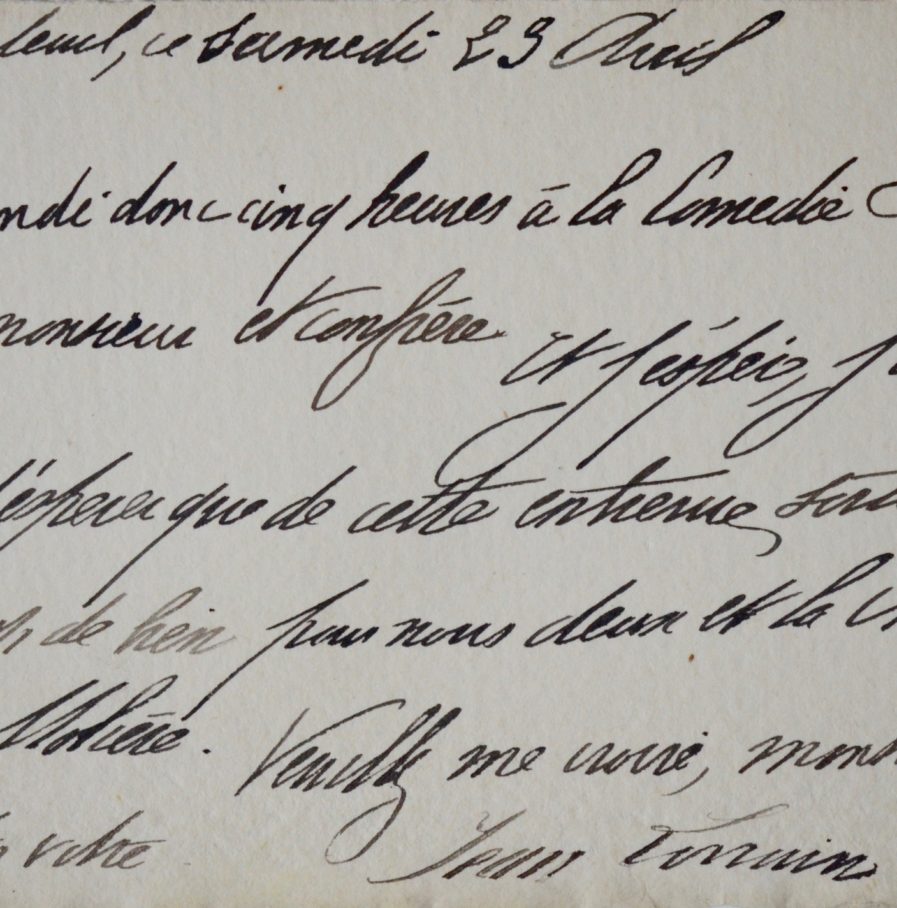 teuil, ce samedi 23 Avril
ndi donc cinq heures à la Comedie
monsieur et confrère. Et j'espère, j'
d'espérer que de cette entrevue,
de bien pour nous deux et la
Molière. Veuillez me croire, mons
votre Jean Lorrain